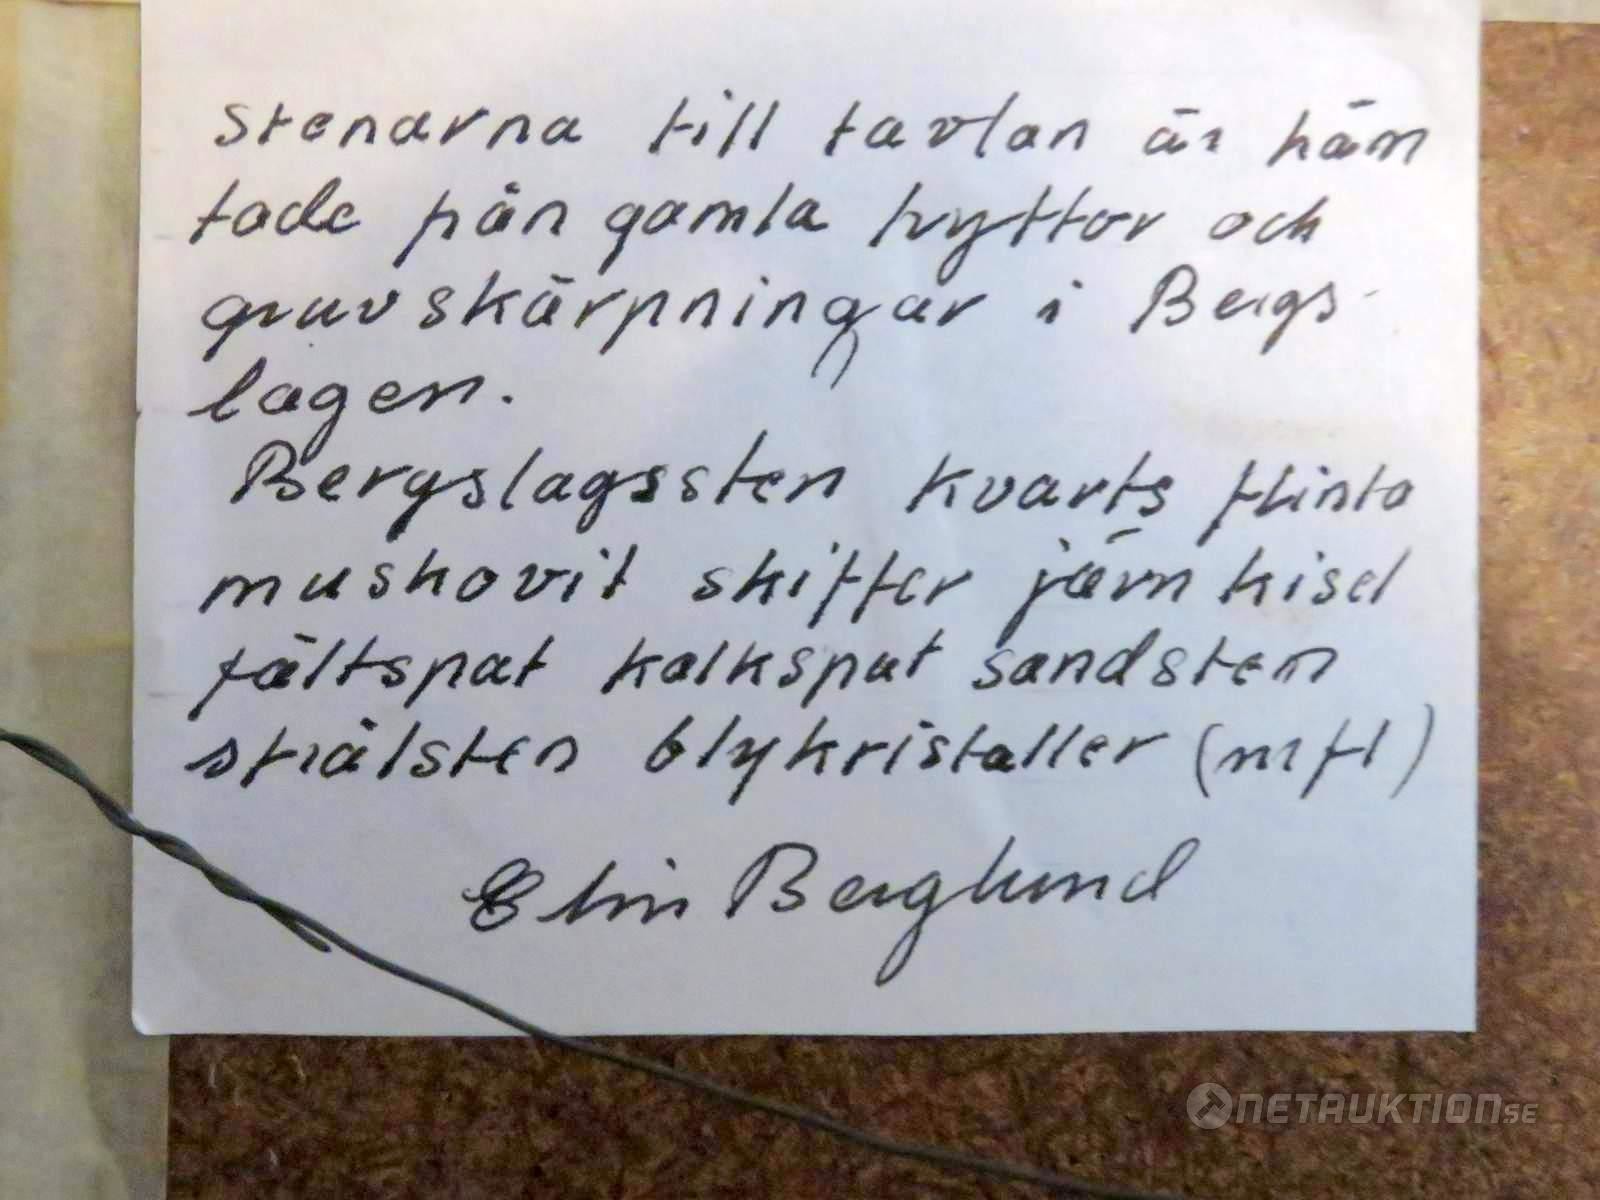 stenarna till tavlan är häm
tade från gamla hyttor och
gruvskärpningar i Bergs-
lagen.
Bergslagssten kvarts flinta
muskovit skiffer järn kisel
fältspat kalkspat sandsten
strålsten blykristaller (mfl)
Elin Berglund
NETAUKTION.SE